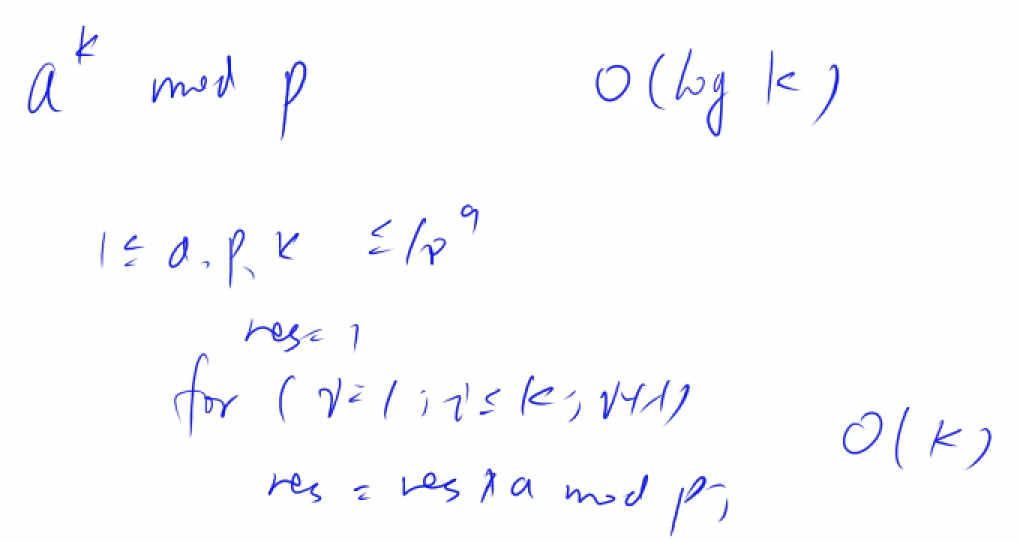 a^k mod p    O(log k)
1 ≤ a, p, k ≤ 10^9
res = 1
for (i = 1; i ≤ k; i++)
O(k)
res = res * a mod p;